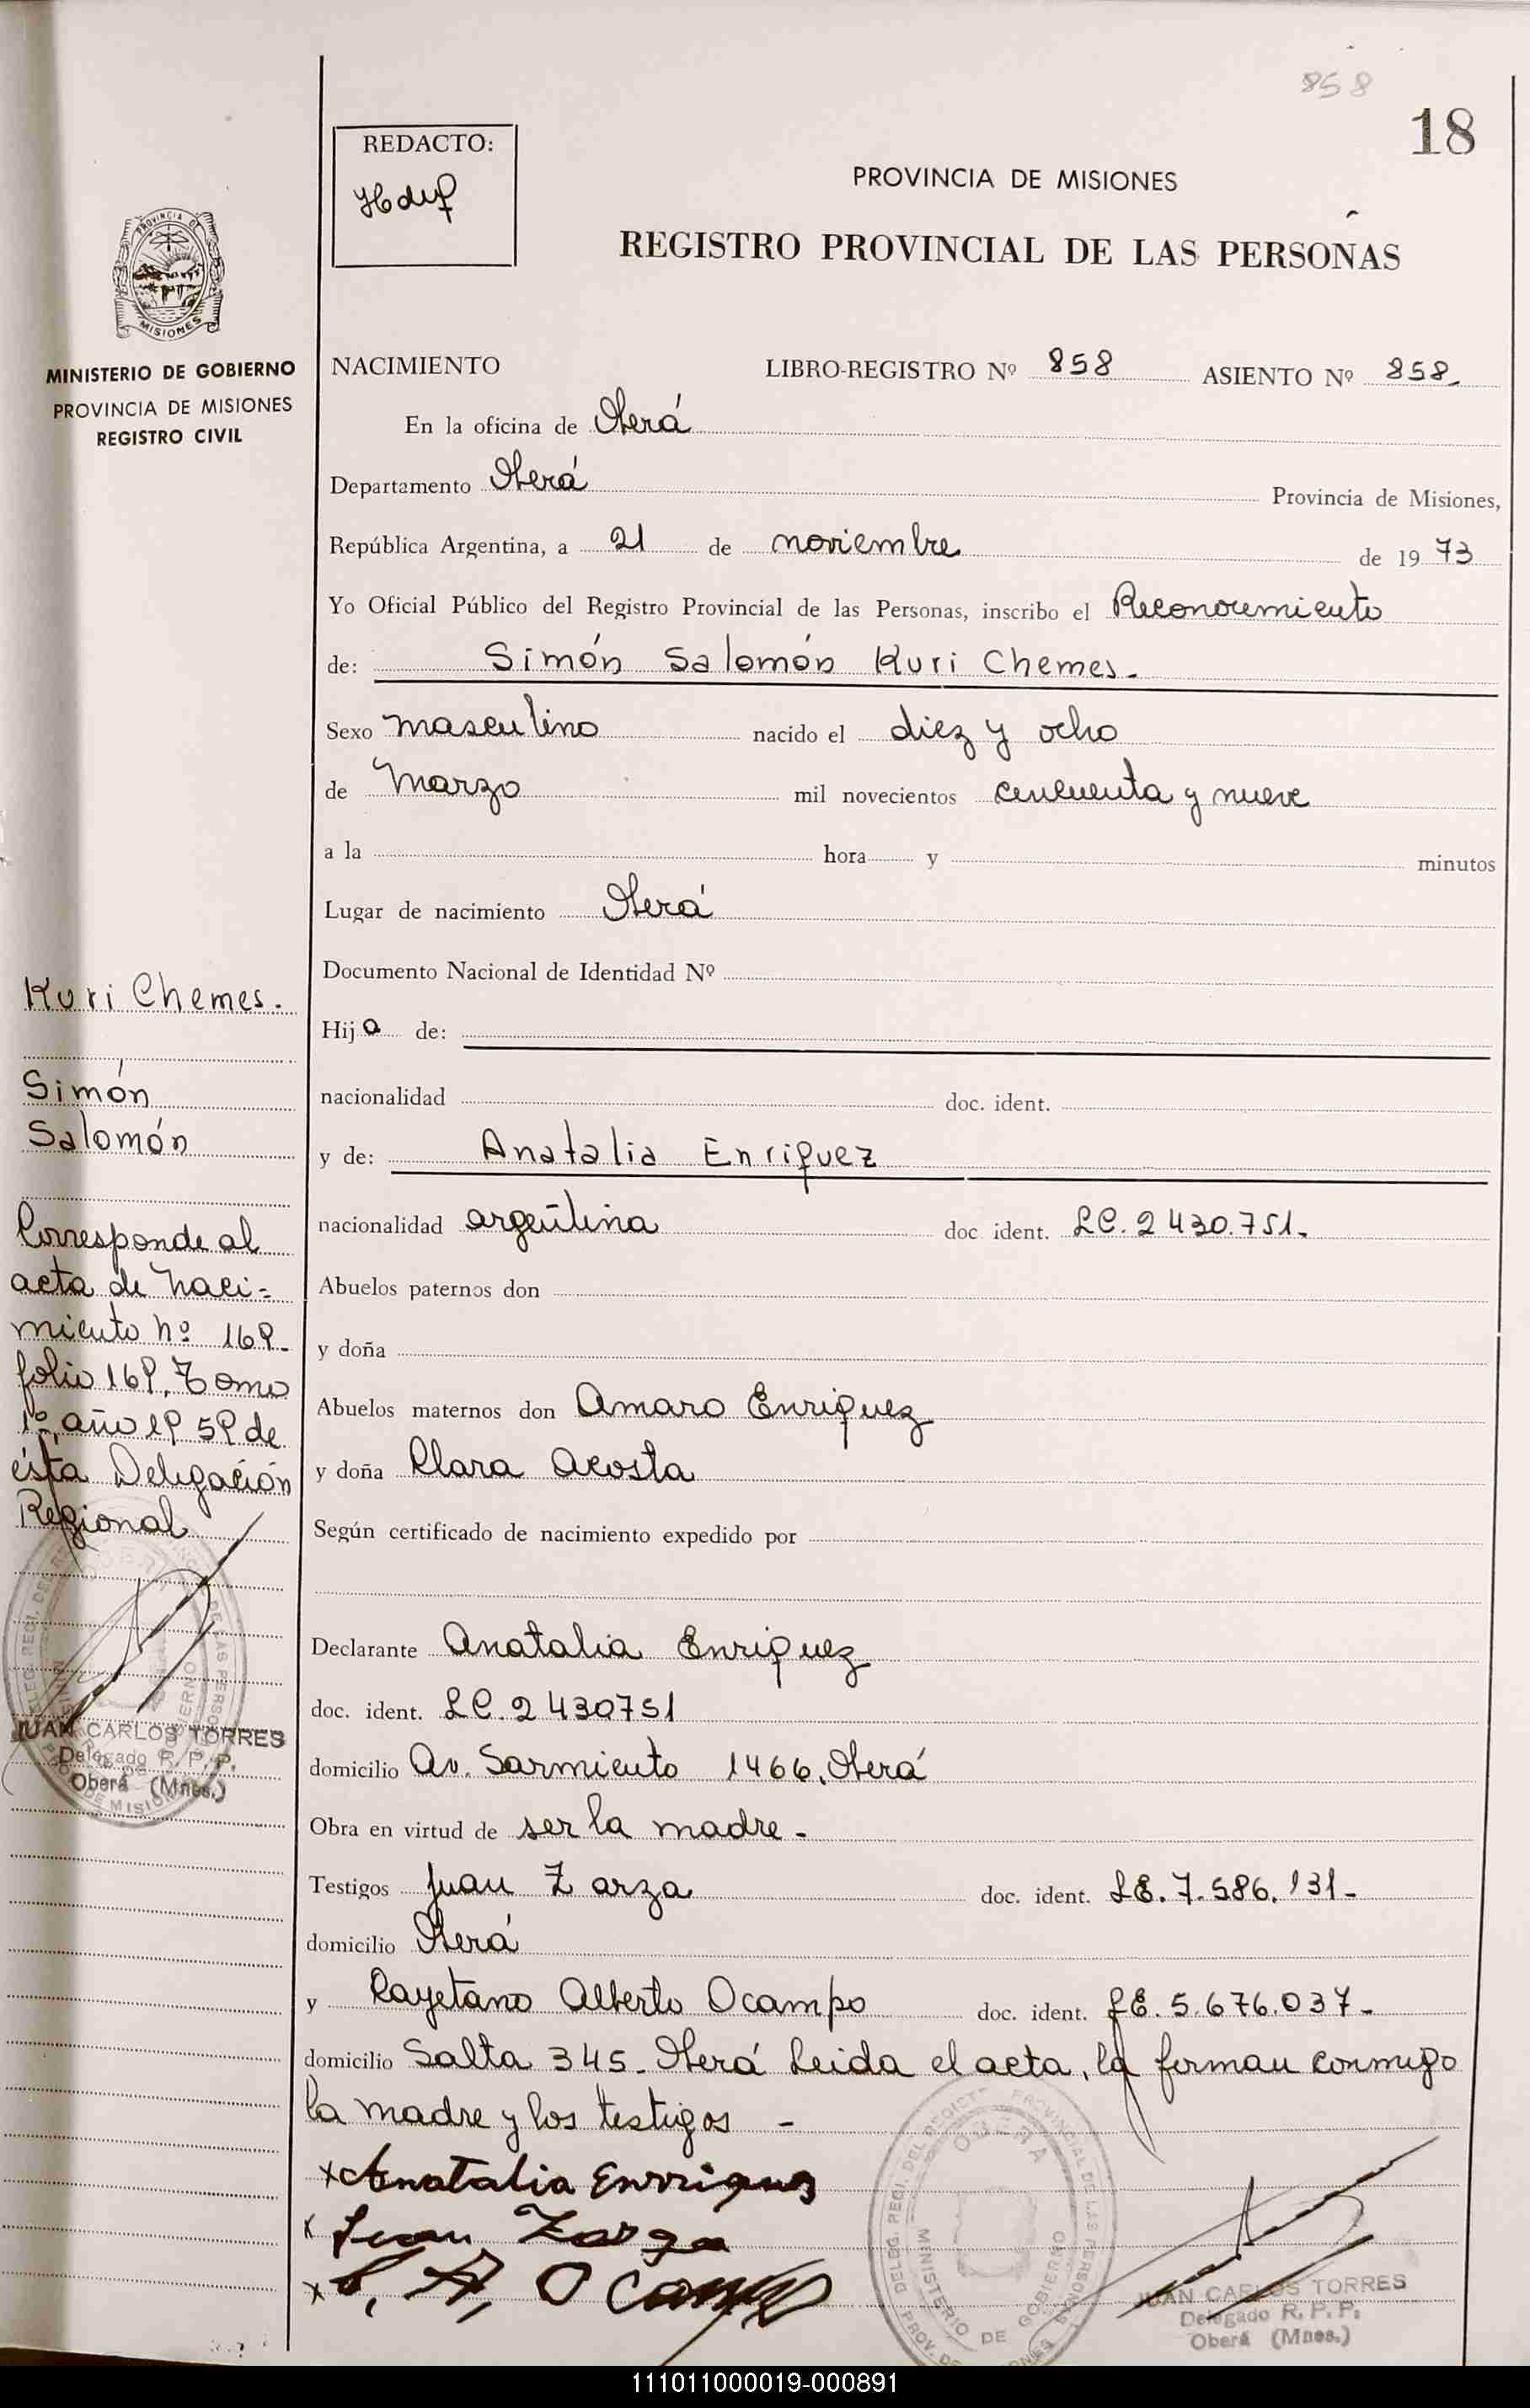 858
18
REDACTO:
PROVINCIA DE MISIONES
REGISTRO PROVINCIAL DE LAS PERSONAS
PROVINCIA DE
MISIONES
MINISTERIO DE GOBIERNO
PROVINCIA DE MISIONES
REGISTRO CIVIL
NACIMIENTO LIBRO-REGISTRO Nº 858 ASIENTO Nº 858
En la oficina de Oberá
Departamento Oberá Provincia de Misiones,
República Argentina, a 21 de noviembre de 1973
Yo Oficial Público del Registro Provincial de las Personas, inscribo el Reconocimiento
de: Simón Salomón Kuri Chemes.-
Sexo masculino nacido el diez y ocho
de Marzo mil novecientos cincuenta y nueve
a la hora y minutos
Lugar de nacimiento Oberá
Documento Nacional de Identidad Nº
Hijo de:
nacionalidad doc. ident.
y de: Anatalia Enriquez
nacionalidad argentina doc ident. LC. 2 430.751.-
Abuelos paternos don
y doña
Abuelos maternos don Amaro Enriquez
y doña Clara Acosta
Según certificado de nacimiento expedido por
Declarante Anatalia Enriquez
doc. ident. LC. 2 430751
domicilio Av. Sarmiento 1466, Oberá
Obra en virtud de ser la madre.-
Testigos Juan Zarza doc. ident. LE. 7.586.131.-
domicilio Oberá
y Cayetano Alberto Ocampo doc. ident. LE. 5.676.037.-
domicilio Salta 345.- Oberá Leida el acta, la firman conmigo
la madre y los testigos.-
x Anatalia Enrriquez
x Juan Zarza
x C. A. Ocampo
Kuri Chemes.
Simón
Salomón
Corresponde al
acta de Naci-
miento Nº 169.
folio 169, Tomo
1º, año 1959 de
ésta Delegación
Regional
JUAN CARLOS TORRES
Delegado R. P. P.
Oberá (Mnes.)
DELEG. REGI. DEL REGIST. PROVINCIAL DE LAS PERSONAS
OBERA
MINISTERIO DE GOBIERNO
PROV. DE MISIONES
JUAN CARLOS TORRES
Delegado R. P. P.
Oberá (Mnes.)
111011000019-000891